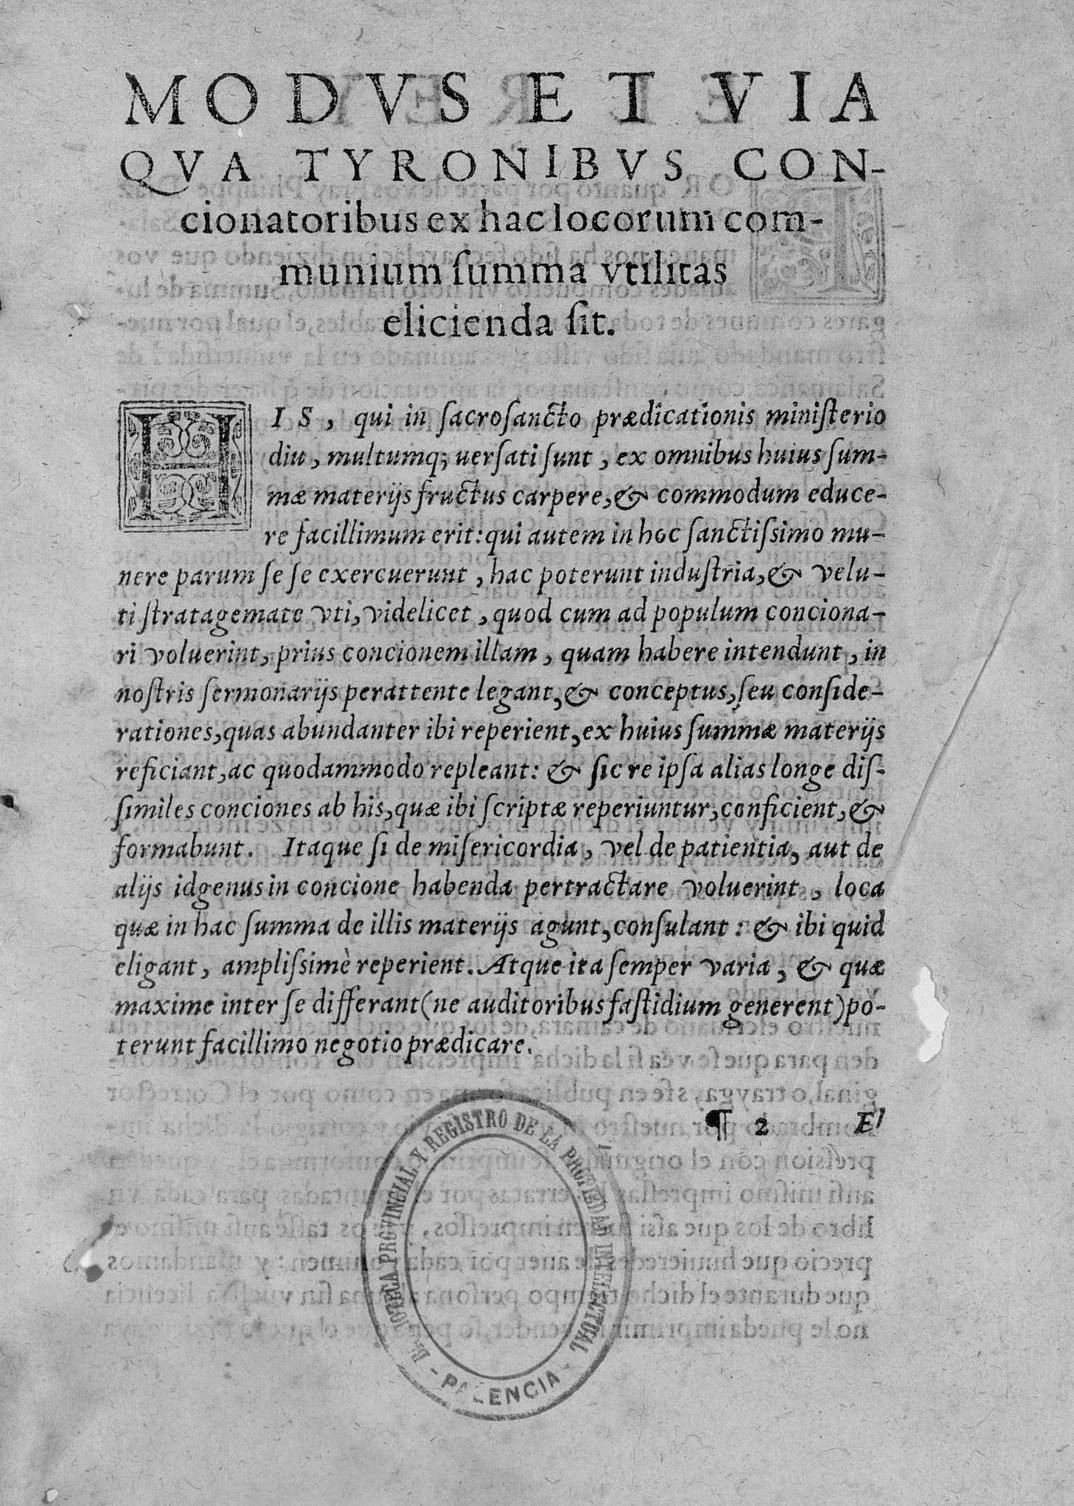 MODVS ET VIA
QVA TYRONIBVS CON-
cionatoribus ex hac locorum com-
munium ſumma vtilitas
elicienda ſit.
HIS, qui in ſacroſancto prædicationis miniſterio
diu, multumq; uerſati ſunt, ex omnibus huius ſum-
mæ materijs fructus carpere, & commodum educe-
re facillimum erit: qui autem in hoc ſanctiſsimo mu-
nere parum ſe ſe exercuerunt, hac poterunt induſtria, & velu-
ti ſtratagemate vti, videlicet, quod cum ad populum conciona-
ri voluerint, prius concionem illam, quam habere intendunt, in
noſtris ſermonarijs perattente legant, & conceptus, ſeu conſide-
rationes, quas abundanter ibi reperient, ex huius ſummæ materijs
reficiant, ac quodammodo repleant: & ſic re ipſa alias longe diſ-
ſimiles conciones ab his, quæ ibi ſcriptæ reperiuntur, conficient, &
formabunt. Itaque ſi de miſericordia, vel de patientia, aut de
alijs idgenus in concione habenda pertractare voluerint, loca
quæ in hac ſumma de illis materijs agunt, conſulant: & ibi quid
eligant, ampliſsimè reperient. Atque ita ſemper varia, & quæ
maxime inter ſe differant (ne auditoribus faſtidium generent) po-
terunt facillimo negotio prædicare.
¶ 2 El
B. IOTECA PROVINCIAL Y REGISTRO DE LA PROPIEDAD INTELECTUAL
- PALENCIA -